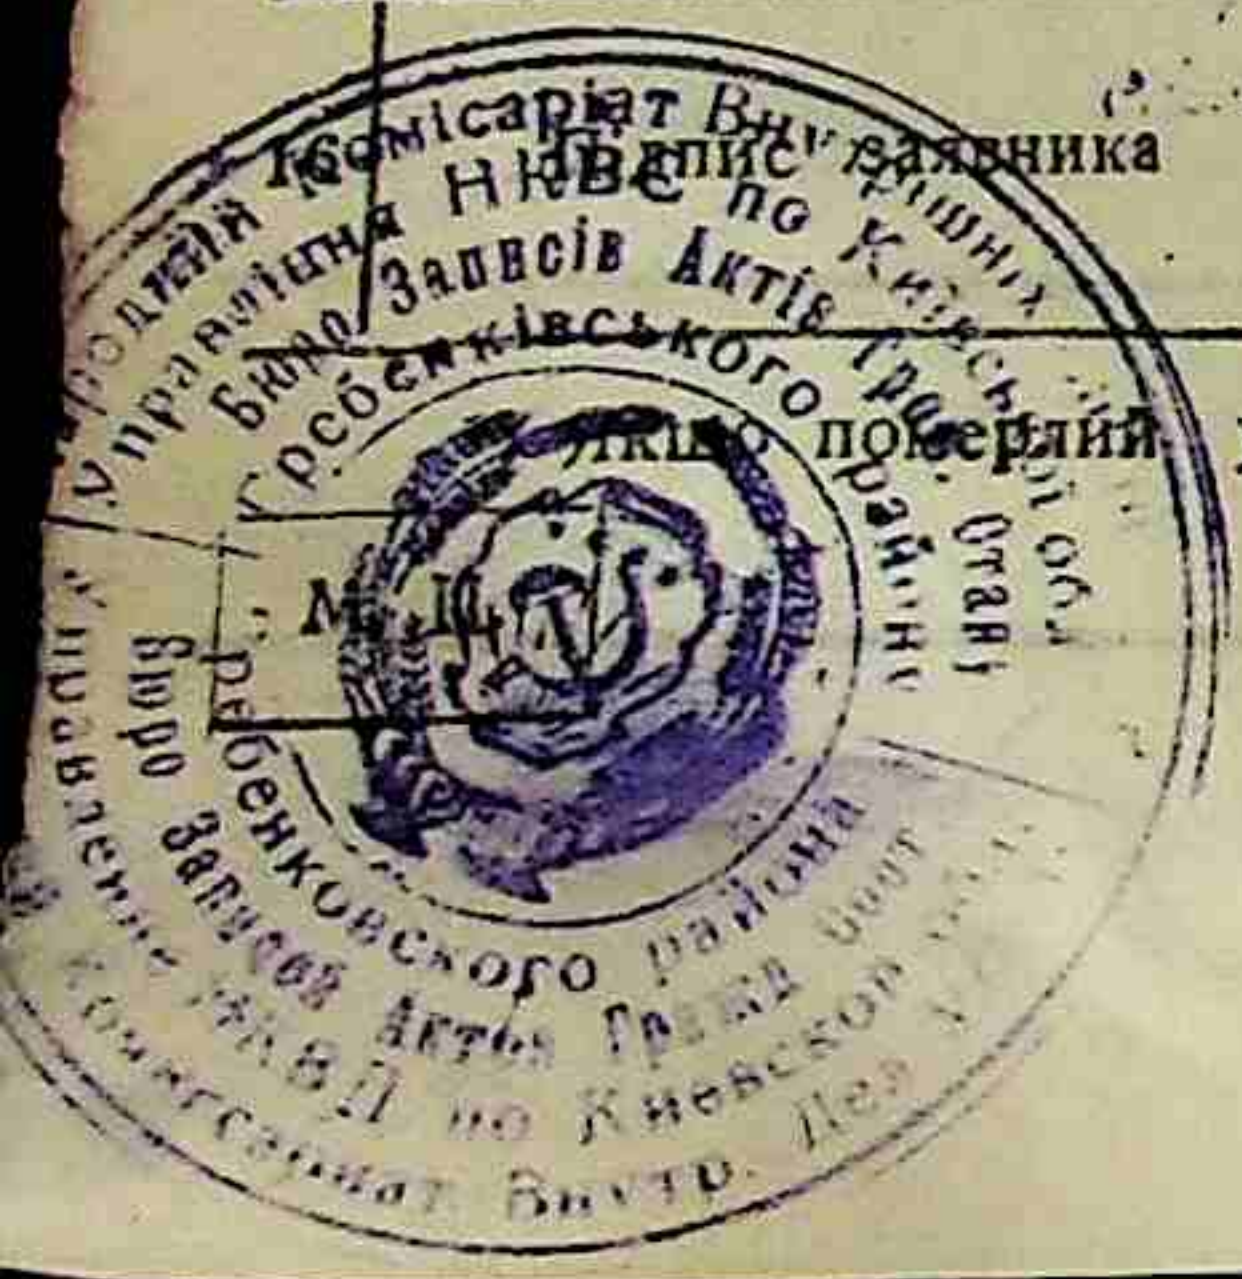 16. Підпис заявника
Якщо померлий
М. П.
Народній Комісаріат Внутрішніх
Управління НКВС по Київській обл.
Бюро Записів Актів Гром. Стану
Гребенківського району
Гребенковского района
Бюро Записей Актов Гражд. Сост.
Управление НКВД по Киевской обл.
Комиссариат Внутр. Дел